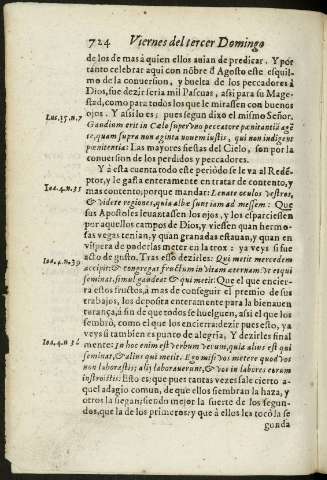 724 Viernes del tercer Domingo
los de mas à quien ellos auian de predicar. Y por
tanto celebrar aqui con nõbre ď Agosto este esquil-
mo de la conuersion, y buelta de los pecadores à
Dios, fue dezir seria mil Pascuas, assi para su Mage-
stad, como para todos los que le mirassen con buenos
ojos. Y assi lo es; pues segun dixo el mismo Señor.
Luc.15.n.7
Gaudium erit in Cælo super vno peccatore pœnitentiã agẽ
te, quam supra nonaginta nouem iustis, qui non indigent
pœnitentia: Las mayores fiestas del Cielo, son por la
conuersion de los perdidos y pecadores.
Y à esta cuenta todo este periodo se le va al Redẽ-
ptor, y le gasta enteramente en tratar de contento, y
Ioa.4.n.35
mas contento; porque mandar: Leuate oculos vestros,
& videte regiones, quia albæ sunt iam ad messem: Que
sus Apostoles leuantassen los ojos, y los esparciessen
por aquellos campos de Dios, y viessen quan hermo-
sas vegas tenian, y quan granadas estauan, y quan en
vispera de poderlas meter en la trox: ya veys si fue
acto de gusto. Tras esso dezirles: Qui metit mercedem
Ioa.4.n.39
accipit: & congregat fructum in vitam æternam: vt & qui
seminat, simul gaudeat & qui metit: Que el que encier-
ra estos frustos, à mas de conseguir el premio de sus
trabajos, los deposita enteramente para la bienauen
turança, à fin de que todos se huelguen, assi el que los
sembrò, como el que los encierra: dezir pues esto, ya
veys si tambien es punto de alegria, Y dezirles final
Ioa.4.n 36
mente: In hoc enim est verbum verum, quia alius est qui
seminat, & alius qui metit. Ego misi vos metere quod vos
non laborastis; alij laborauerunt, & vos in labores eorum
introistis: Esto es: que pues tantas vezes sale cierto a-
quel adagio comun, de que ellos siembran la haza, y
otros la siegan; siendo mejor la suerte de los segun-
dos, que la de los primeros; y que à ellos les tocò la se
gunda